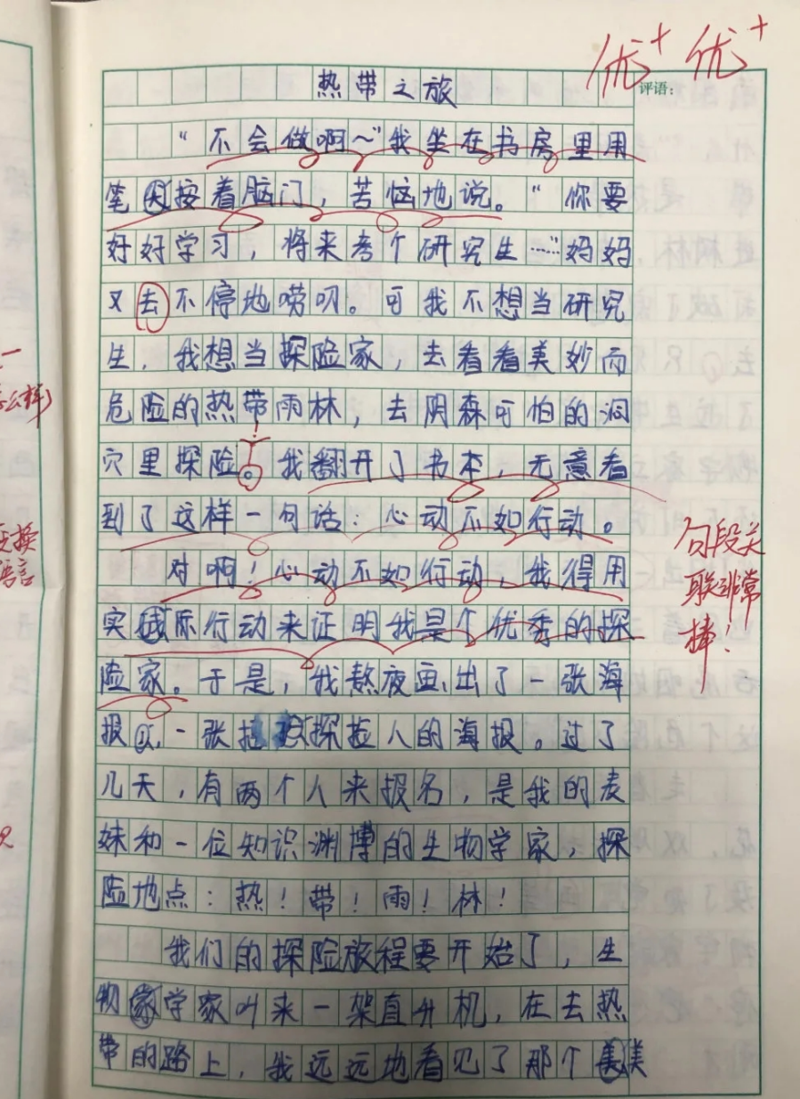 优+ 优+
评语：
热带之旅
“不会做啊～”我坐在书房里用
笔因按着脑门，苦恼地说。“你要
好好学习，将来考个研究生……”妈妈
又去不停地唠叨。可我不想当研究
生，我想当探险家，去看看美妙而
危险的热带雨林，去阴森可怕的洞
穴里探险。我翻开了书本，无意看
到了这样一句话：心动不如行动。
对啊！心动不如行动，我得用
实际行动来证明我是个优秀的探
险家。于是，我熬夜画出了一张海
报，一张探险人的海报。过了
几天，有两个人来报名，是我的表
妹和一位知识渊博的生物学家，探
险地点：热！带！雨！林！
我们的探险旅程要开始了，生
物学家叫来一架直升机，在去热
带的路上，我远远地看见了那个美
句段关
联非常
棒！